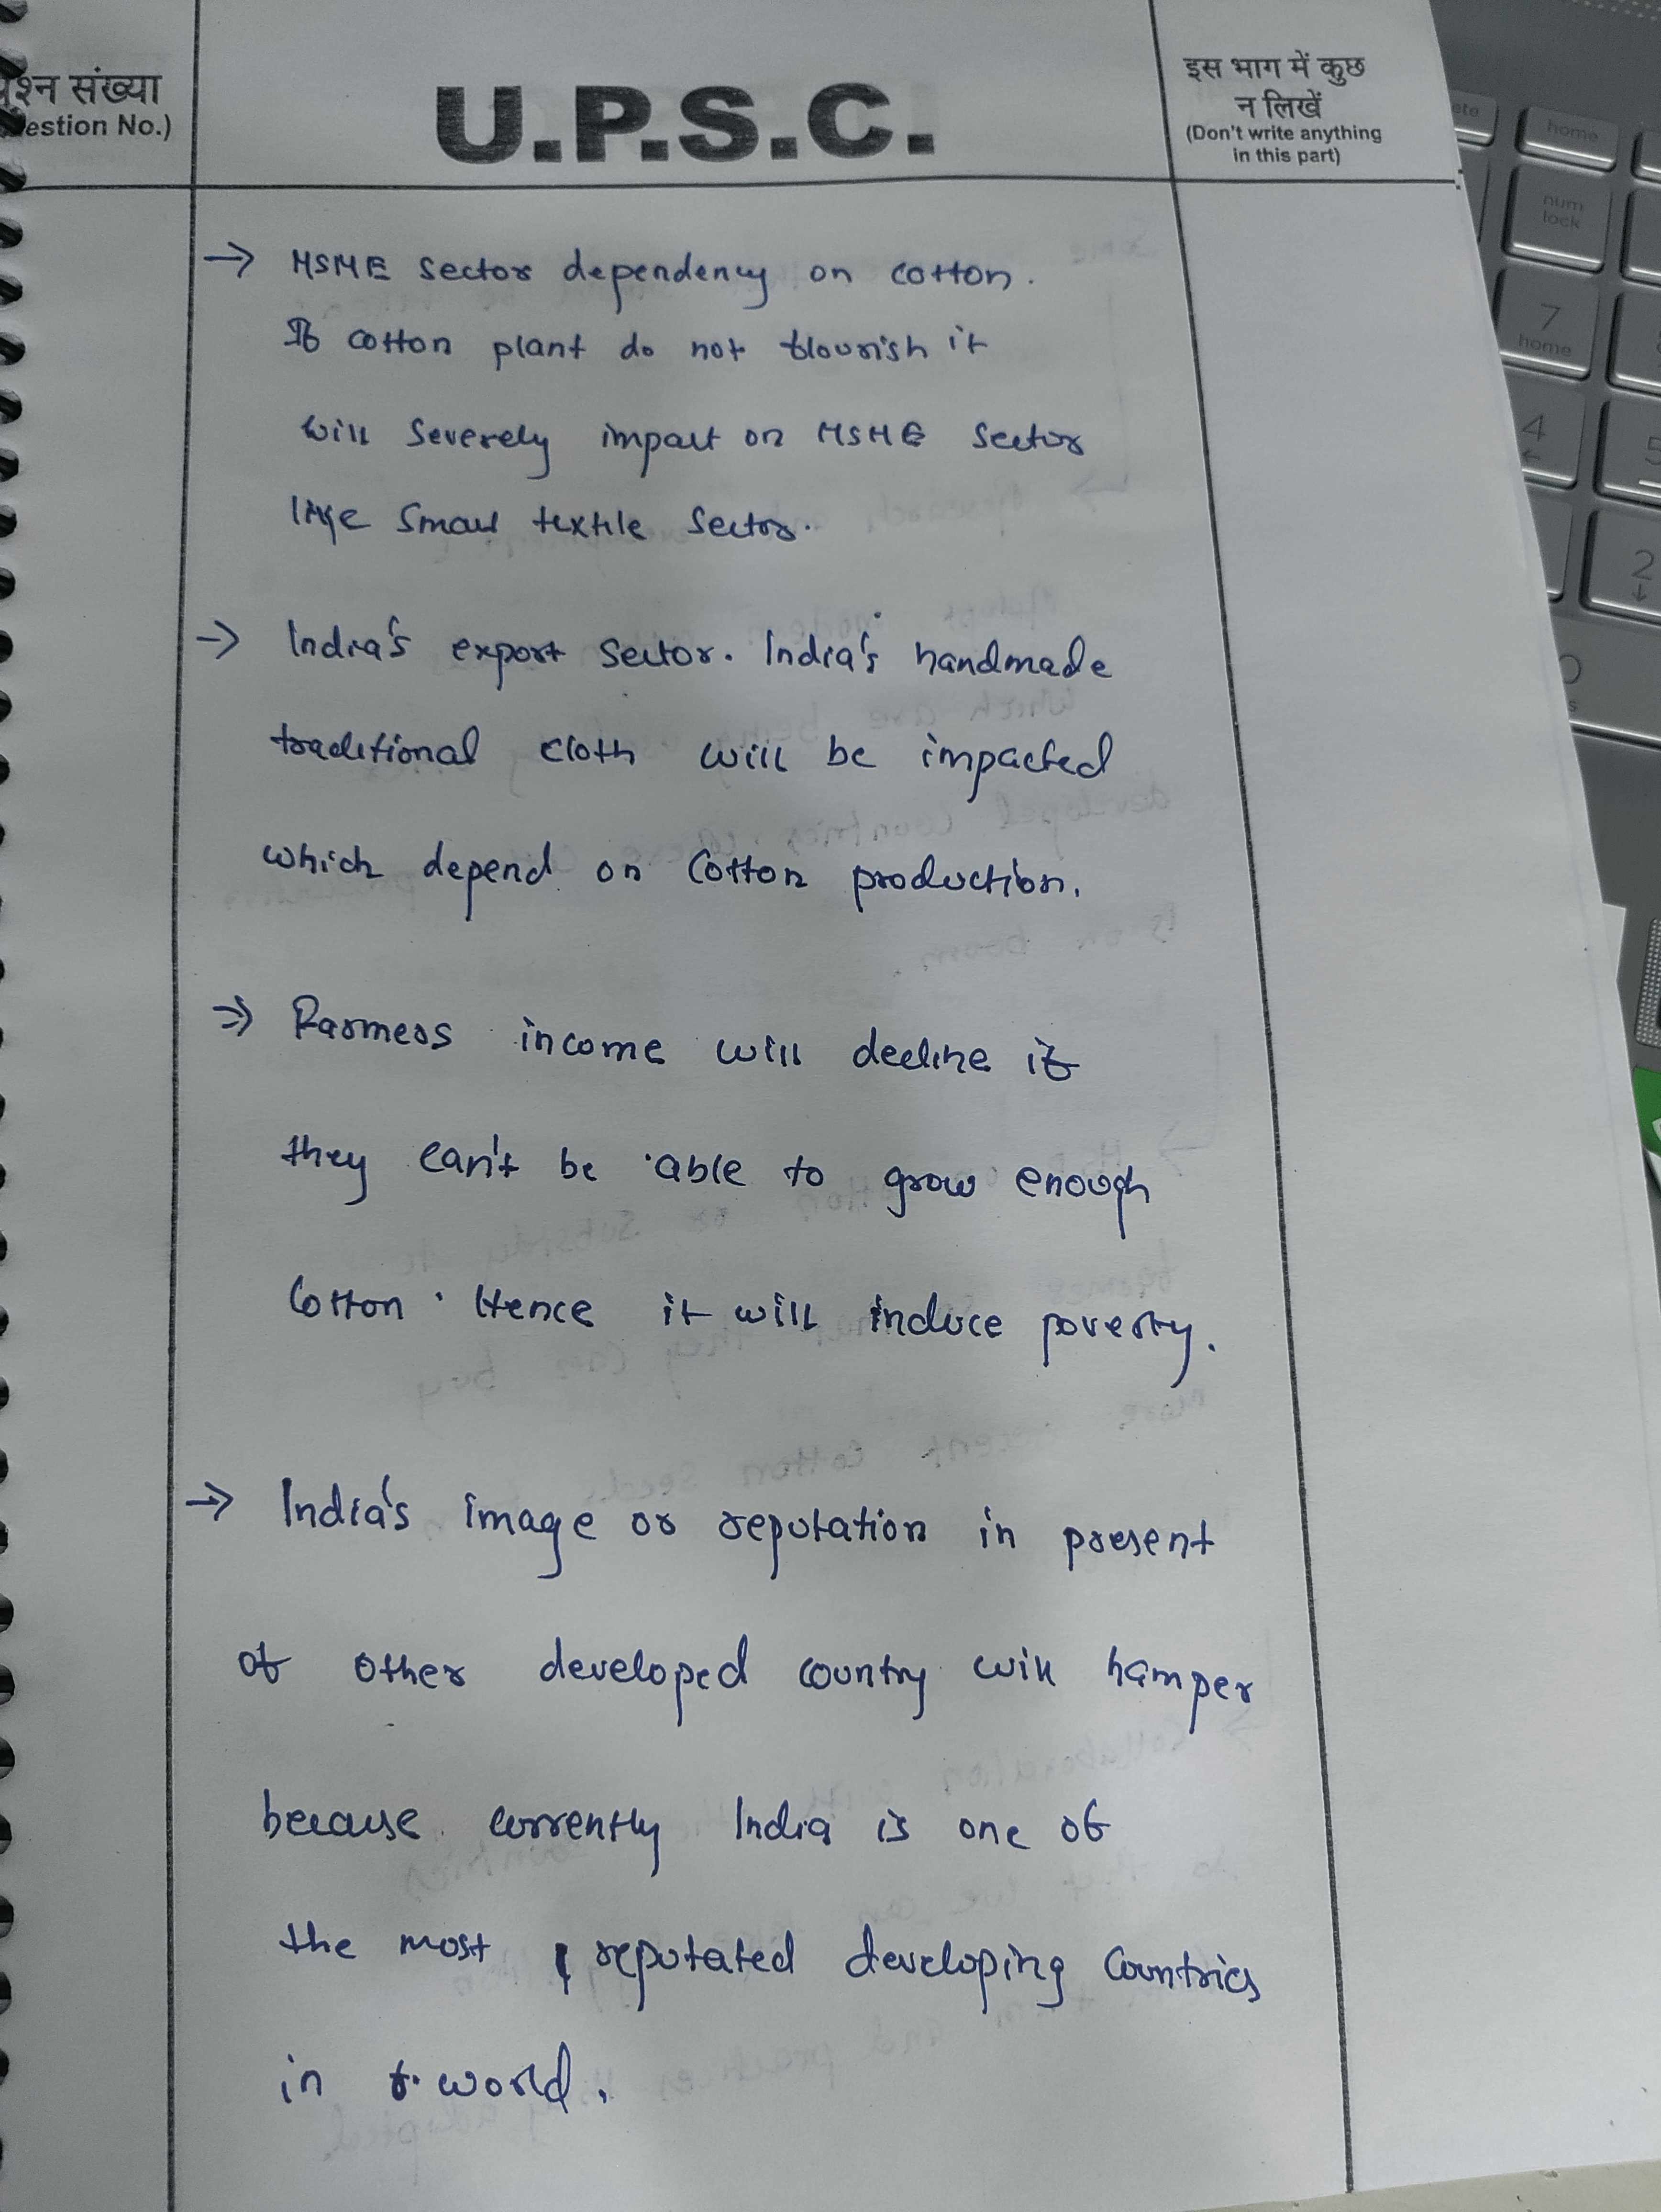 प्रश्न संख्या
estion No.)
U.P.S.C.
इस भाग में कुछ
न लिखें
(Don't write anything
in this part)
→ MSME Sector dependency on cotton.
If cotton plant do not flourish it
will severely impact on MSME Sector
like small textile Sector.
→ India's export sector. India's handmade
traditional cloth will be impacted
which depend on Cotton production.
⇒ Farmers income will decline if
they can't be able to grow enough
Cotton. Hence it will induce poverty.
→ India's image or reputation in present
of other developed country will hamper
because currently India is one of
the most reputated developing Countries
in world.
home
num
lock
7
home
4
←
5
2
↓